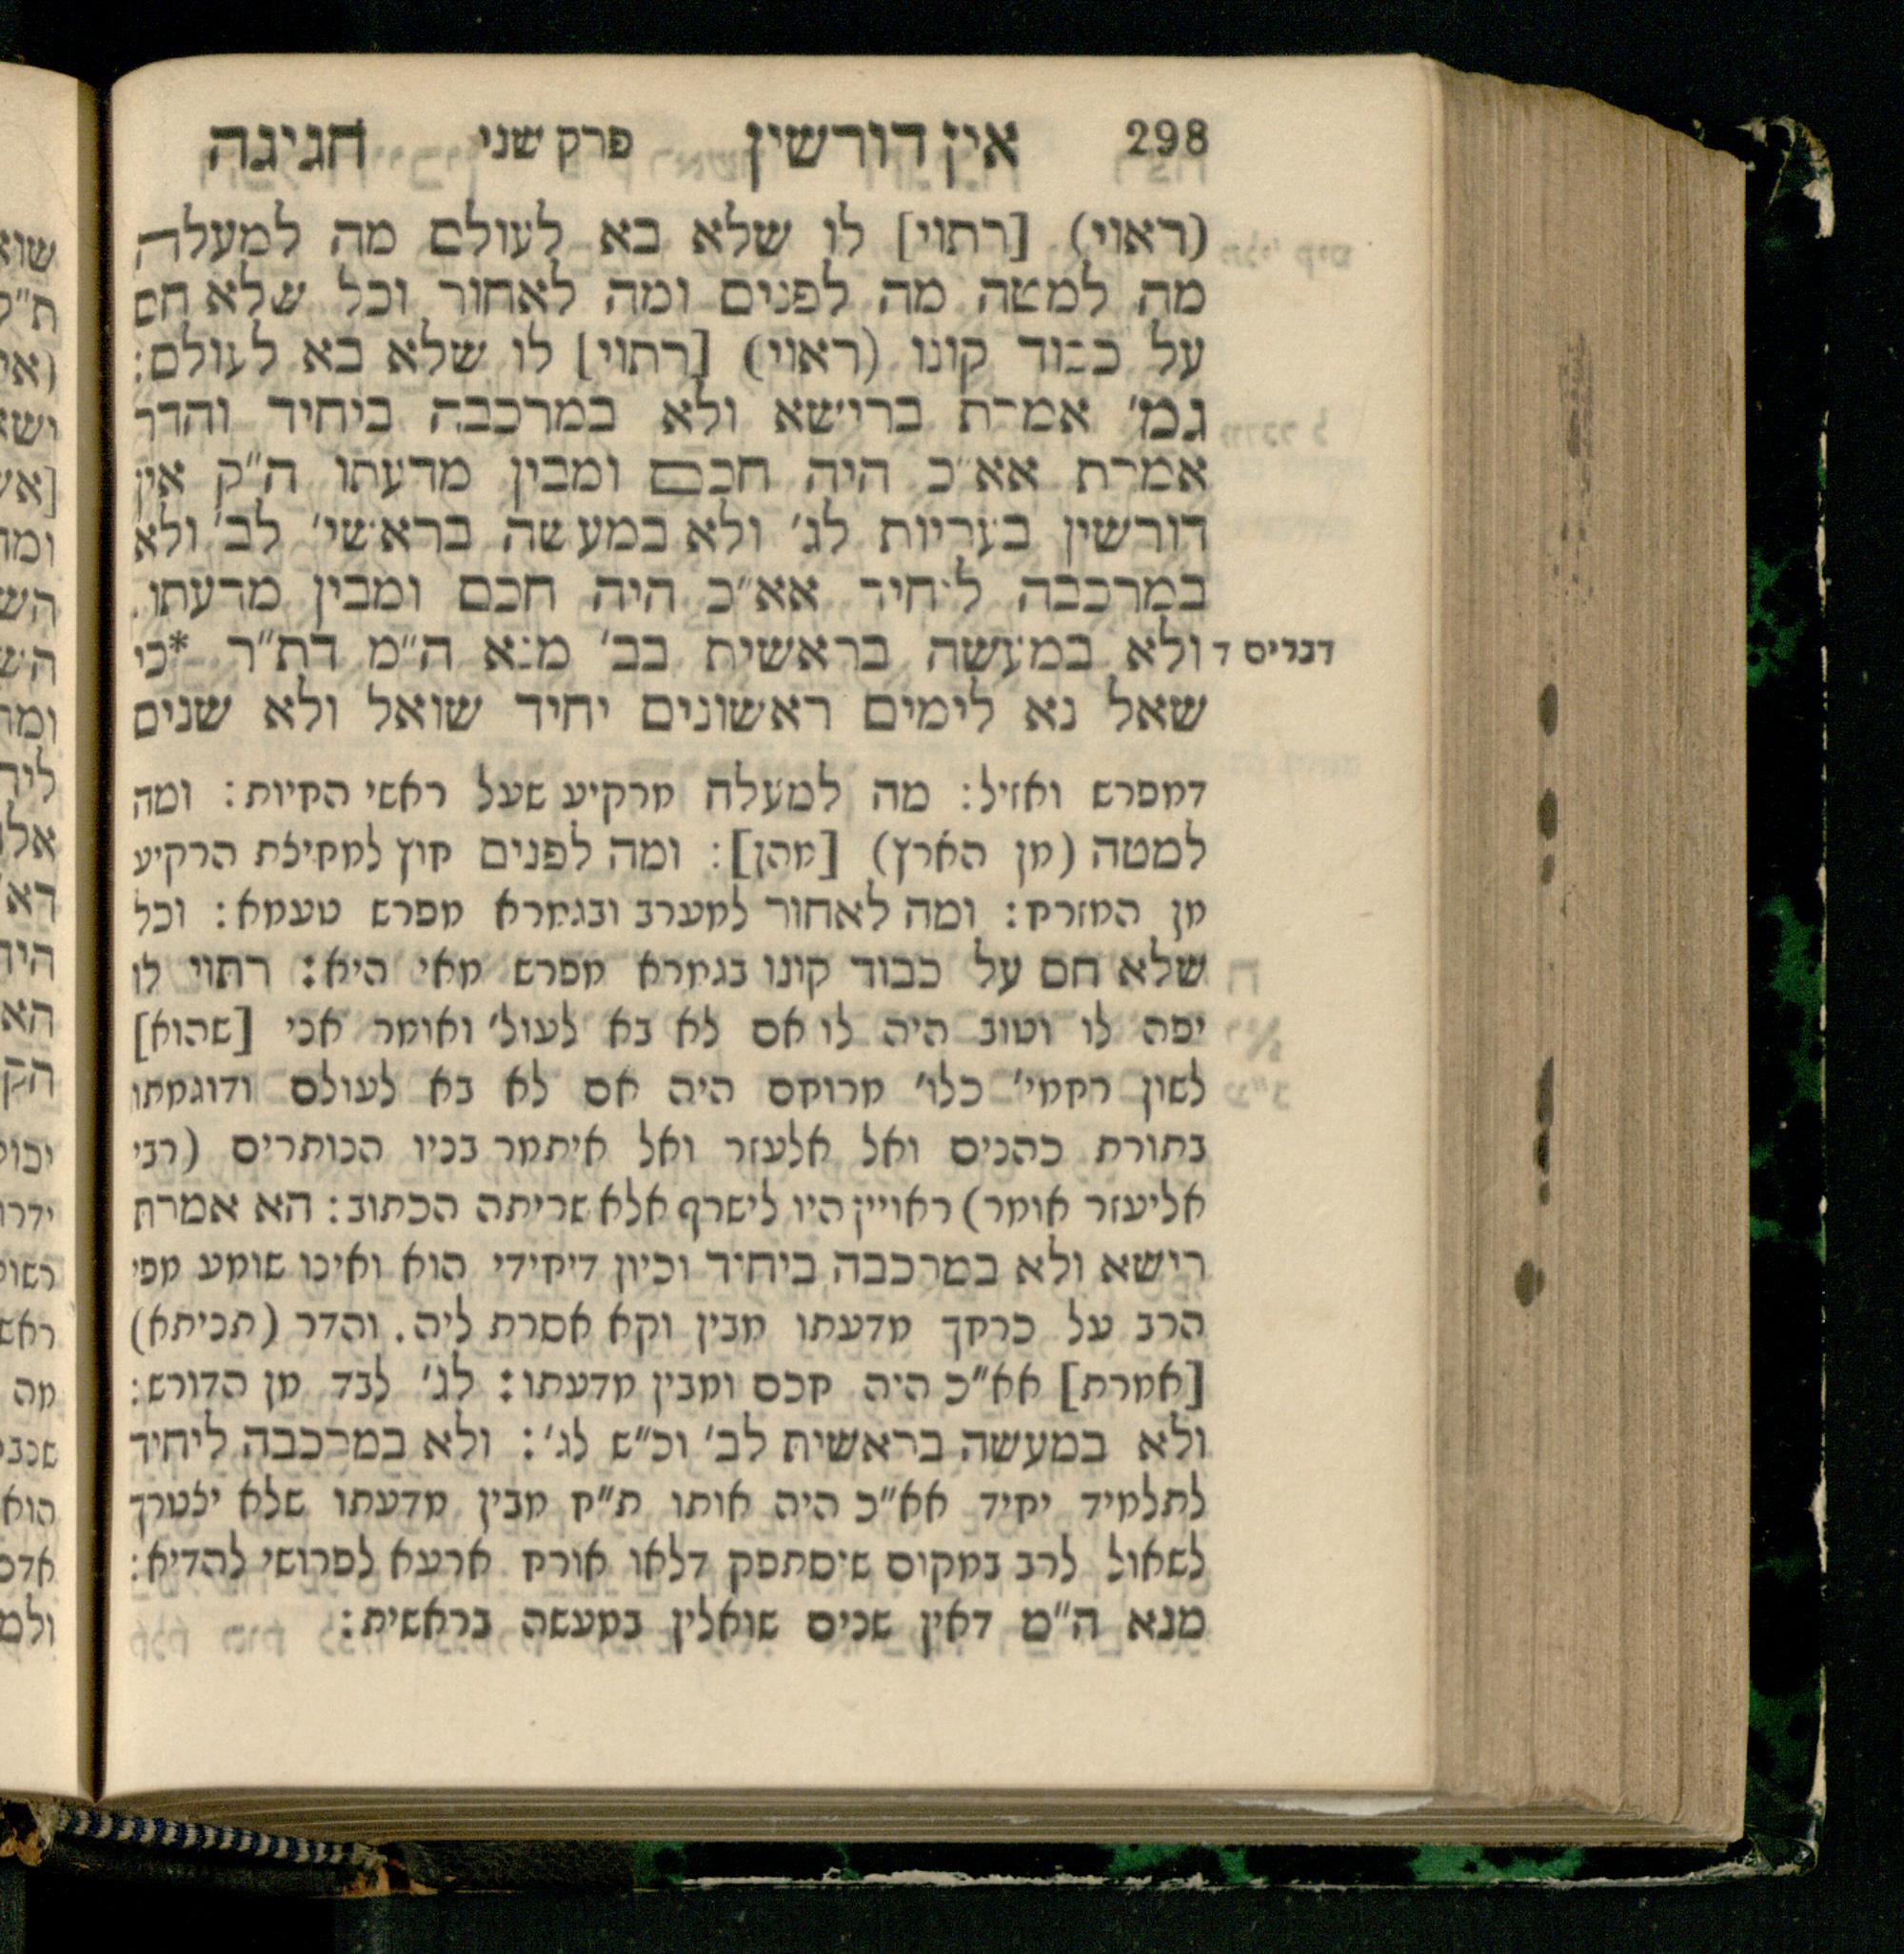 298 אין דורשין פרק שני חגיגה
(ראוי) [רתוי] לו שלא בא לעולם מה למעלה
מה למטה מה לפנים ומה לאחור וכל שלא חם
על כבוד קונו (ראוי) [רתוי] לו שלא בא לעולם:
גמ׳ אמרת ברישא ולא במרכבה ביחיד והדר
אמרת אא״כ היה חכם ומבין מדעתו ה״ק אין
דורשין בעריות לג׳ ולא במעשה בראשי׳ לב׳ ולא
במרכבה ליחיד אא״כ היה חכם ומבין מדעתו.
דברים ד ולא במעשה בראשית בב׳ מנא ה״מ דת״ר *כי
שאל נא לימים ראשונים יחיד שואל ולא שנים
דמפרש ואזיל: מה למעלה מרקיע שעל ראשי החיות: ומה
למטה (מן הארץ) [מהן]: ומה לפנים חוץ למחילת הרקיע
מן המזרח: ומה לאחור למערב ובגמרא מפרש טעמא: וכל
שלא חם על כבוד קונו בגמרא מפרש מאי היא: רתוי לו
יפה לו וטוב היה לו אם לא בא לעול׳ ואומר אני [שהוא]
לשון רחמי׳ כלו׳ מרוחם היה אם לא בא לעולם ודוגמתו
בתורת כהנים ואל אלעזר ואל איתמר בניו הנותרים (רבי
אליעזר אומר) ראויין היו לישרף אלא שריתה הכתוב: הא אמרת
רישא ולא במרכבה ביחיד וכיון דיחידי הוא ואינו שומע מפי
הרב על כרחך מדעתו מבין וקא אסרת ליה. והדר (תניתא)
[אמרת] אא״כ היה חכם ומבין מדעתו: לג׳ לבד מן הדורש:
ולא במעשה בראשית לב׳ וכ״ש לג׳: ולא במרכבה ליחיד
לתלמיד יחיד אא״כ היה אותו ת״ח מבין מדעתו שלא יצטרך
לשאול לרב במקום שיסתפק דלאו אורח ארעא לפרושי להדיא:
מנא ה״מ דאין שנים שואלין במעשה בראשית: